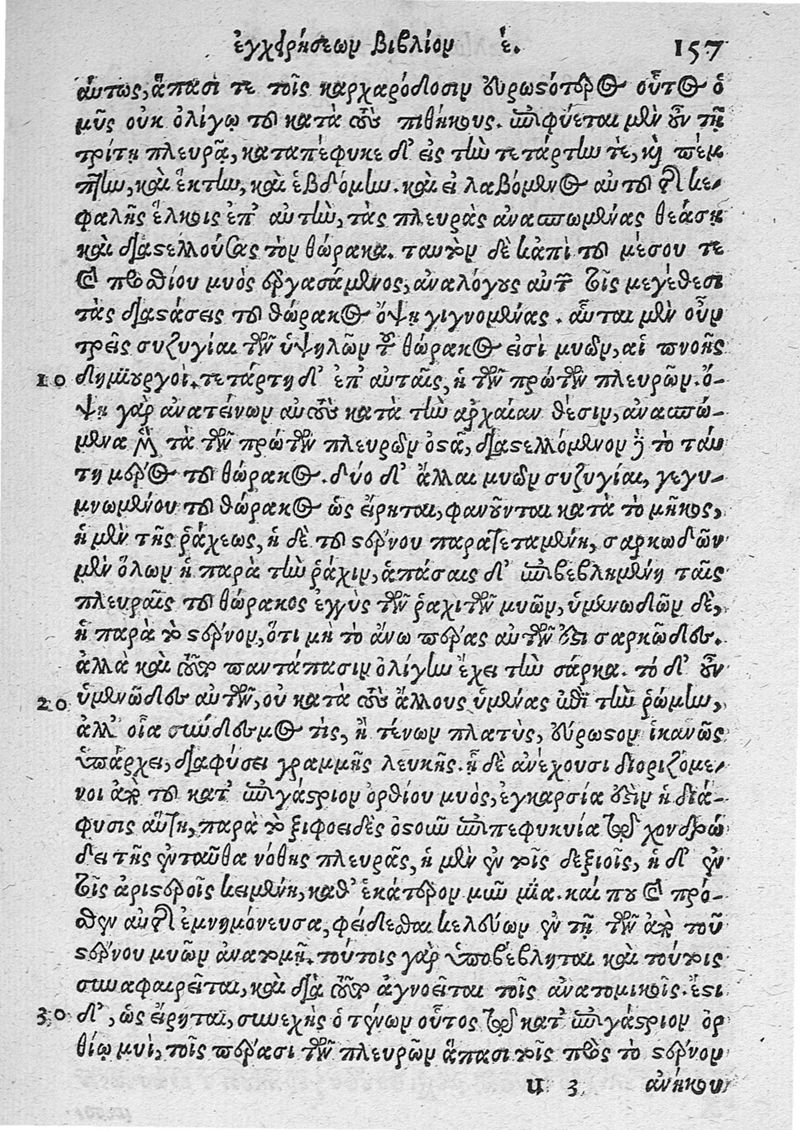 ἐγχειρήσεων βιβλίον έ. 157
αύτως, ἅπασί τε τοῖς καρχαρόδουσιν εὐρωστότερος οὗτος ὁ
μῦς οὐκ ὀλίγῳ τοῦ κατὰ τοὺς πιθήκους. ἐπιφύεται μὲν οὖν τῇ
τρίτῃ πλευρᾷ, καταπέφυκε δ' εἰς τὴν τετάρτην τε, καὶ πέμ
πτην, καὶ ἕκτην, καὶ ἑβδόμην. καὶ εἰ λαβόμενος αὐτοῦ τῆς κε-
φαλῆς ἕλκοις ἐπ' αὐτὴν, τὰς πλευρὰς ἀνασπωμένας θεάσῃ
καὶ διαστελλούσας τὸν θώρακα. ταυτὸν δὲ κἀπὶ τοῦ μέσου τε
καὶ προσθίου μυὸς ἐργασάμενος, ἀναλόγους αὐτῶν τοῖς μεγέθεσι
τὰς διαστάσεις τοῦ θώρακος ὄψῃ γιγνομένας. αὗται μὲν οὖν
τρεῖς συζυγίαι τῶν ὑψηλῶν τοῦ θώρακός εἰσι μυῶν, αἱ πνοῆς
10 δημιουργοί. τετάρτη δ' ἐπ' αὐταῖς, ἡ τῶν πρώτων πλευρῶν. ὄ-
ψῃ γὰρ ἀνατείνων αὐτοὺς κατὰ τὴν ἀρχαίαν θέσιν, ἀνασπώ-
μενα μὲν τὰ τῶν πρώτων πλευρῶν ὀστᾶ, διαστελλόμενον δὲ τὸ ταύ
τῃ μέρος τοῦ θώρακος. δύο δ' ἄλλαι μυῶν συζυγίαι, γεγυ-
μνωμένου τοῦ θώρακος ὡς εἴρηται, φανοῦνται κατὰ τὸ μῆκος,
ἡ μὲν τῆς ῥάχεως, ἡ δὲ τοῦ στέρνου παρατεταμένη, σαρκωδῶν
μὲν ὅλων ἡ παρὰ τὴν ῥάχιν, ἁπάσαις δ' ἐπιβεβλημένη ταῖς
πλευραῖς τοῦ θώρακος ἐγγὺς τῶν ῥαχιτῶν μυῶν, ὑμενωδῶν δὲ,
ἡ παρὰ τὸ στέρνον, ὅτι μὴ τὸ ἄνω πέρας αὐτῶν ἐστι σαρκῶδες.
ἀλλὰ καὶ τοῦτο παντάπασιν ὀλίγην ἔχει τὴν σάρκα. τό δ' οὖν
20 ὑμενῶδες αὐτῶν, οὐ κατὰ τοὺς ἄλλους ὑμένας ἐπὶ τὴν ῥώμην,
ἀλλ' οἷα σύνδεσμός τις, ἢ τένων πλατὺς, εὔρωστον ἱκανῶς
ὑπάρχει, διαφύσει γραμμῆς λευκῆς. ᾗ δὲ ἀνέχουσι διοριζόμε-
νοι ἀπὸ τοῦ κατ' ἐπιγάστριον ὀρθίου μυὸς, ἐγκαρσία ἐστὶν ἡ διά-
φυσις αὕτη, παρὰ τὸ ξιφοειδὲς ὀστοῦν ἐπιπεφυκυῖα τῷ χονδρώ
δει τῆς ἐνταῦθα νόθης πλευρᾶς, ἡ μὲν ἐν τοῖς δεξιοῖς, ἡ δ' ἐν
τοῖς ἀριστεροῖς κειμένη, καθ' ἑκάτερον μῦν μία. καί που καὶ πρό-
σθεν αὐτῆς ἐμνημόνευσα, φείδεσθαι κελεύων ἐν τῇ τῶν ἀπὸ τοῦ
στέρνου μυῶν ἀνατομῇ. τούτοις γὰρ ὑποβέβληται καὶ τούτοις
συναφαιρεῖται, καὶ διὰ τοῦτο ἀγνοεῖται τοῖς ἀνατομικοῖς. ἔστι
30 δ', ὡς εἴρηται, συνεχὴς ὁ τένων οὗτος τῷ κατ' ἐπιγάστριον ὀρ
θίῳ μυὶ, τοῖς πέρασι τῶν πλευρῶν ἅπασι τοῖς πρὸς τὸ στέρνον
u 3 ἀνήκου